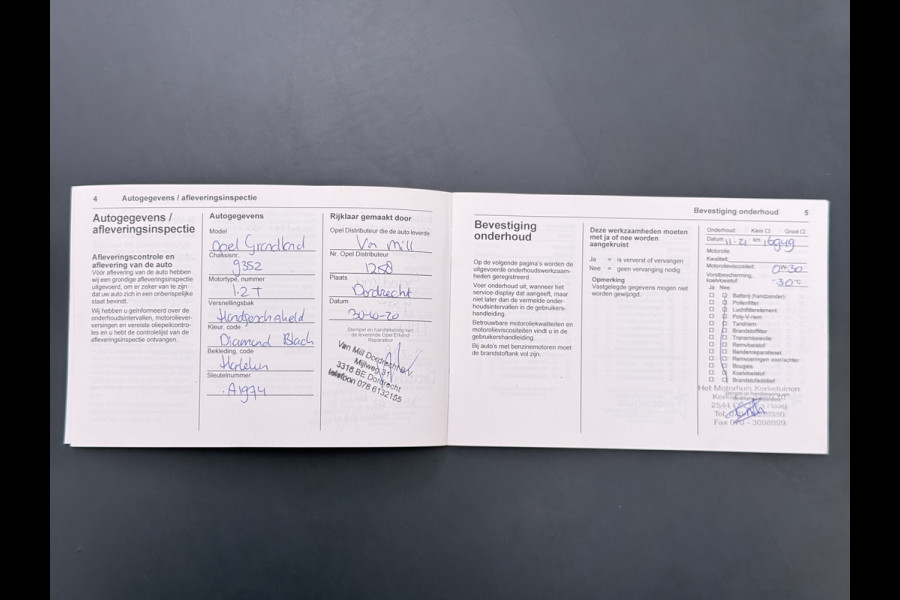 4 Autogegevens / afleveringsinspectie
Autogegevens /
afleveringsinspectie
Afleveringscontrole en
aflevering van de auto
Voor aflevering van de auto hebben
wij een grondige afleveringsinspectie
uitgevoerd, om er zeker van te zijn
dat uw auto zich in een onberispelijke
staat bevindt.
Wij hebben u geïnformeerd over de
onderhoudsintervallen, motoroliever-
versingen en vereiste oliepeilcontro-
les en u hebt de controlelijst van de
afleveringsinspectie ontvangen.
Autogegevens
Model
Opel Grandland
Chassisnr.
9352
Motortype, nummer
1.2 T
Versnellingsbak
Handgeschakeld
Kleur, code
Diamond Black
Bekleding, code
Sleutelnummer
A1974
Rijklaar gemaakt door
Opel Distributeur die de auto leverde
Van Mill
Nr. Opel Distributeur
1258
Plaats
Dordrecht
Datum
30-10-20
Stempel en handtekening van
de leverende Opel Erkend
Reparateur
Van Mill Dordrecht B.V.
Mijlweg 31
3316 BE Dordrecht
telefoon 078 6132155
Bevestiging onderhoud 5
Bevestiging
onderhoud
Op de volgende pagina's worden de
uitgevoerde onderhoudswerkzaam-
heden geregistreerd.
Voer onderhoud uit, wanneer het
service-display dat aangeeft, maar
niet later dan de vermelde onder-
houdsintervallen in de gebruikers-
handleiding.
Betrouwbare motoroliekwaliteiten en
motorolieviscositeiten vindt u in de
gebruikershandleiding.
Bij auto's met benzinemotoren moet
de brandstoftank vol zijn.
Deze werkzaamheden moeten
met ja of nee worden
aangekruist
Ja = is ververst of vervangen
Nee = geen vervanging nodig
Opmerking
Vastgelegde gegevens mogen niet
worden gewijzigd.
Onderhoud: Klein Groot
Datum 11-21 km 16949
Motorolie
Kwaliteit:
Motorolieviscositeit: 0w30
Vorstbescherming,
koelvloeistof -30°
Ja Nee
Batterij (handzender)
Pollenfilter
Luchtfilterelement
Poly-V-riem
Tandriem
Brandstoffilter
Transmissieolie
Remvloeistof
Bandenreparatieset
Remvoeringen voor/achter
Bougies
Koelvloeistof
Brandstofadditief
Het Motorhuis Kerketuinen
Fax 070 - 3098999